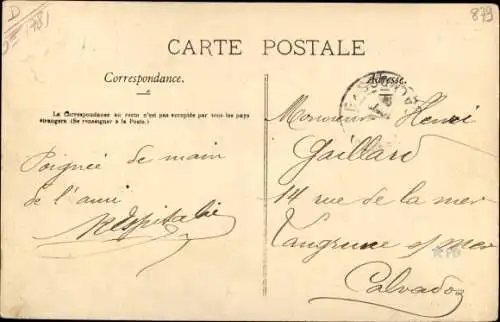 D
(78)
879
CARTE POSTALE
Correspondance.
Adresse.
La Correspondance au recto n'est pas acceptée par tous les pays
étrangers (Se renseigner à la Poste.)
Poignée de main
de l'ami
Monsieur Henri
Gaillard
14 rue de la mer
Langrune s/ Mer
Calvados